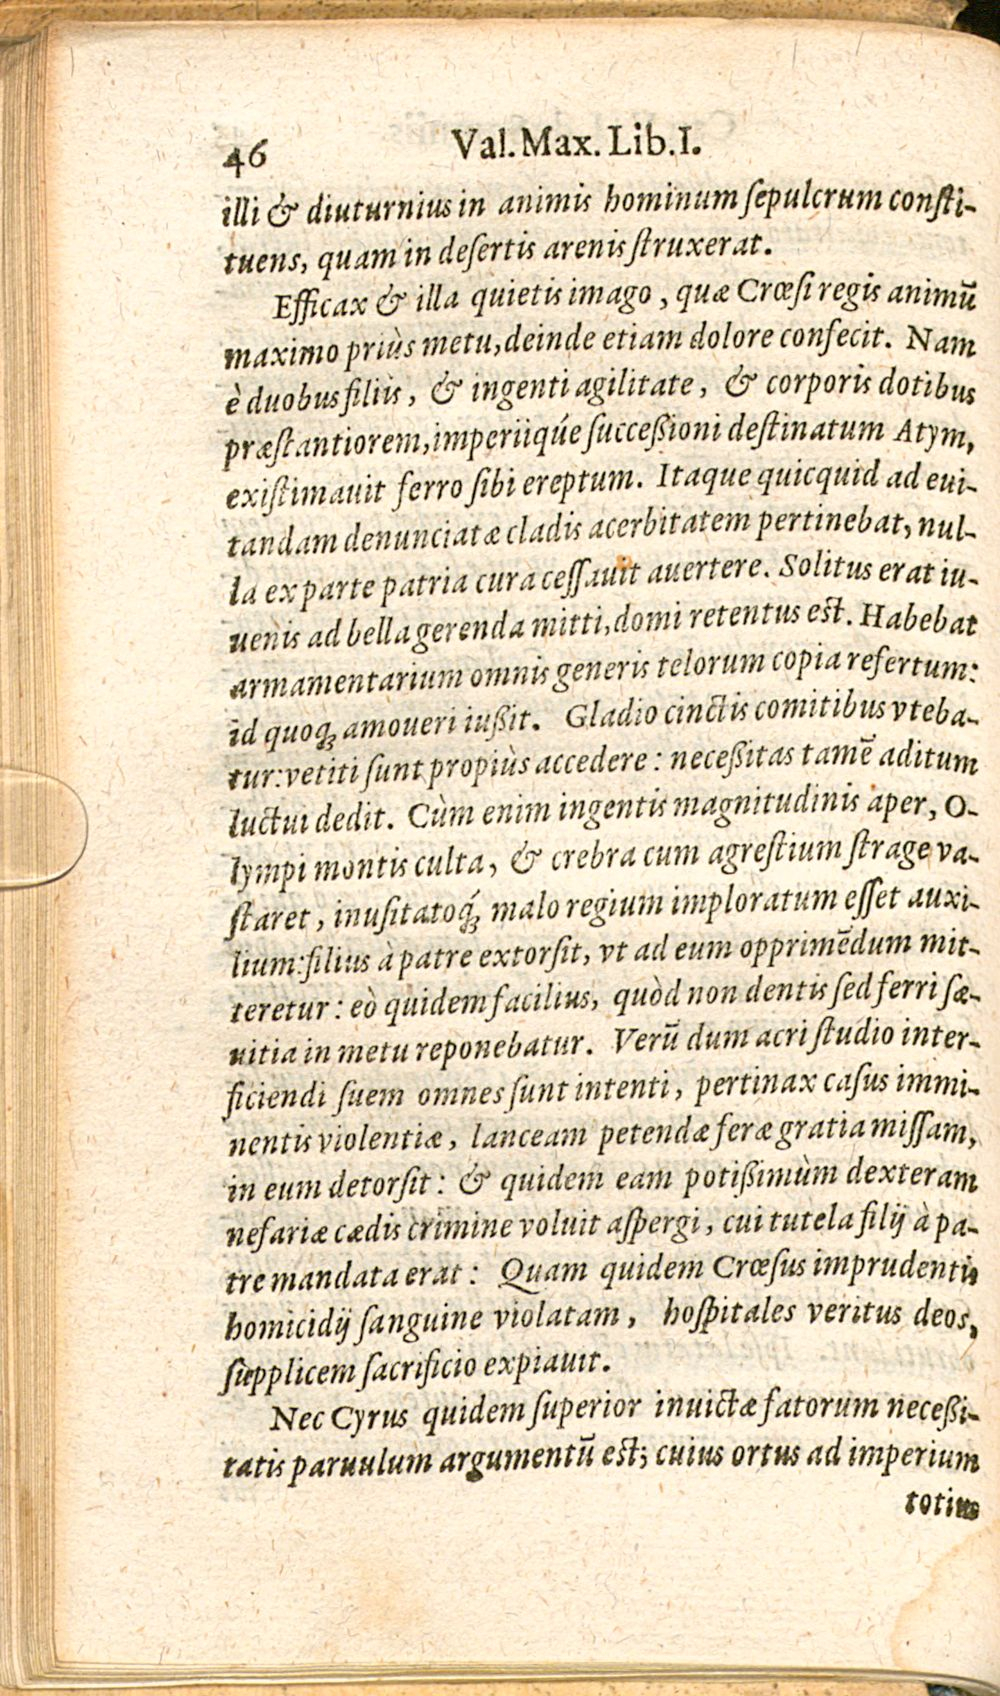 46 Val. Max. Lib. I.
illi & diuturnius in animis hominum ſepulcrum conſti-
tuens, quam in deſertis arenis ſtruxerat.
Efficax & illa quietis imago, quæ Crœſi regis animū
maximo priùs metu, deinde etiam dolore confecit. Nam
è duobus filiis, & ingenti agilitate, & corporis dotibus
præſtantiorem, imperiiqúe ſucceßioni deſtinatum Atym,
exiſtimauit ferro ſibi ereptum. Itaque quicquid ad eui-
tandam denunciatæ cladis acerbitatem pertinebat, nul-
la ex parte patria cura ceſſauit auertere. Solitus erat iu-
uenis ad bella gerenda mitti, domi retentus eſt. Habebat
armamentarium omnis generis telorum copia refertum:
id quoq; amoueri iußit. Gladio cinctis comitibus vteba-
tur: vetiti ſunt propiùs accedere: neceßitas tamē aditum
luctui dedit. Cùm enim ingentis magnitudinis aper, O-
lympi montis culta, & crebra cum agreſtium ſtrage va-
ſtaret, inuſitatoq́; malo regium imploratum eſſet auxi-
lium: filius à patre extorſit, vt ad eum opprimēdum mit-
teretur: eò quidem facilius, quòd non dentis ſed ferri ſæ-
uitia in metu reponebatur. Verū dum acri ſtudio inter-
ficiendi ſuem omnes ſunt intenti, pertinax caſus immi-
nentis violentiæ, lanceam petendæ feræ gratia miſſam,
in eum detorſit: & quidem eam potißimùm dexteram
nefariæ cædis crimine voluit aſpergi, cui tutela filij à pa-
tre mandata erat: Quam quidem Crœſus imprudentis
homicidij ſanguine violatam, hoſpitales veritus deos,
ſupplicem ſacrificio expiauit.
Nec Cyrus quidem ſuperior inuictæ fatorum neceßi-
tatis paruulum argumentū eſt; cuius ortus ad imperium
totius